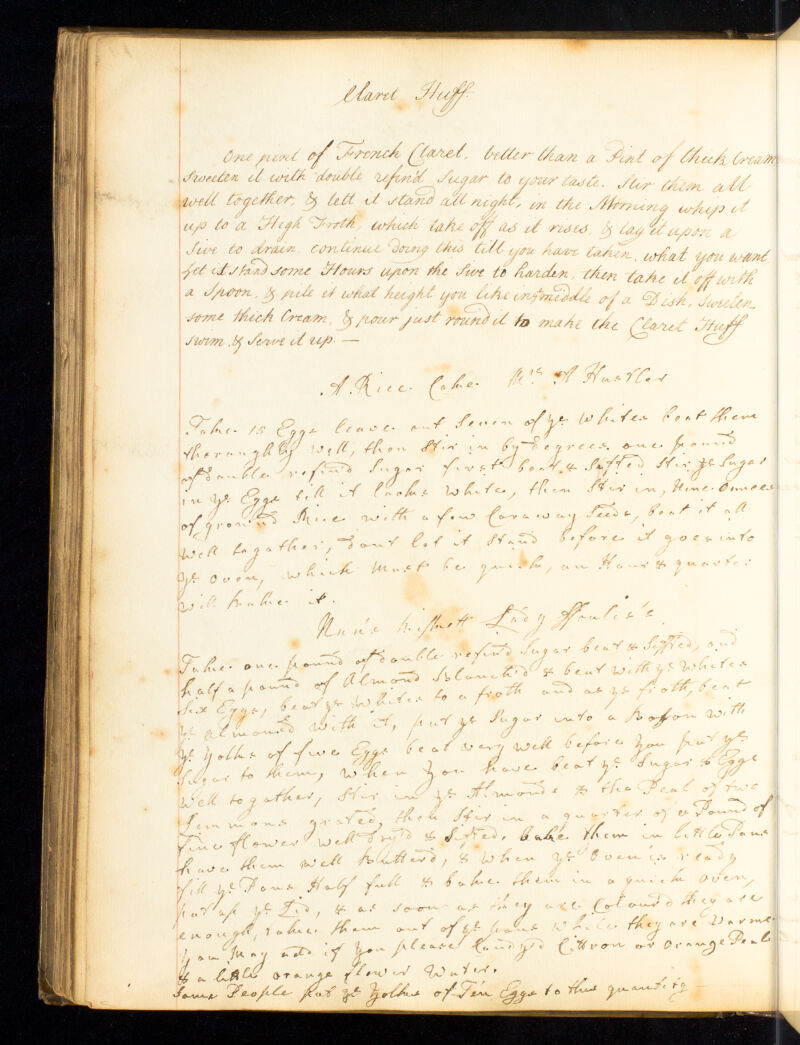 Claret Huff.
One pint of French Claret, better than a Pint of thick Cream
Sweeten it with double refin'd Sugar to your taste. Stir them all
well together, & lett it stand all night, in the Morning whip it
up to a High Froth, which take off as it rises, & lay it upon a
Sive to drain, continue doing this till you have taken, what you want
Let it stand some Hours upon the Sive to harden, then take it off with
a Spoon, & pile it what height you like in ye middle of a Dish, Sweeten
some thick Cream, & pour just round it to make the Claret Huff
swim, & Serve it up. —
A Rice Cake Mrs A Hustler
Take 15 Eggs leave out Seven of ye Whites beat them
thoroughly well, then Stir in by degrees one pound
of double refind Sugar first beat & Sifted Stir ye Sugar
in ye Eggs till it looks White, then Stir in, Nine Ounces
of ground Rice with a few Caraway Seeds, beat it all
well togather, dont let it Stand before it goes into
ye oven, which Must be quick, an Hour & quarter
will bake it.
Nun's bisket Lady ffoulis's
Take one pound of double refind Sugar beat & Sifted, and
half a pound of Almond Blanch'd & beat with ye Whites
Six Eggs, beat ye Whites to a froth and as ye froth, beat
ye almond with it, put ye Sugar into a Bason with
ye Yolks of five Eggs beat very well before you put ye
Sugar to them, when you have beat ye Sugar & Eggs
well togather, Stir in ye Almonds & the Peal of two
Lemmons grated, then Stir in a quarter of a Pound of
fine flower well dry'd & Sifted, bake them in little Pans
have them well Butterd, & when ye Oven is ready
fill ye Pans Half full & bake them in a quick oven,
put up ye Lid, & as soon as they are Colourd they are
enough, take them out of ye pans while they are warme
you May add if you please Candyd Cittron or orange Peal
& a little orange flower Water.
Some People put ye Yolks of Ten Eggs to this quantity —